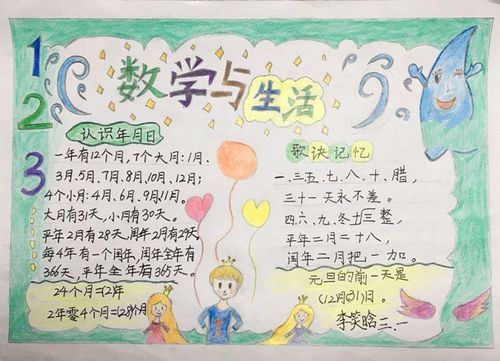 1
2
3
数学与生活
认识年月日
一年有12个月,7个大月:1月、
3月、5月、7月、8月、10月、12月;
4个小月:4月、6月、9月、11月。
大月有31天,小月有30天。
平年2月有28天,闰年2月有29天。
每4年有一个闰年,闰年全年有
366天,平年全年有365天。
24个月=(2)年
2年零4个月=(28)个月
歌诀记忆
一、三五、七、八、十、腊,
三十一天永不差。
四、六、九、冬三十整,
平年二月二十八,
闰年二月把一加。
元旦的前一天是
(12月31)日。
李笑晗 三、一